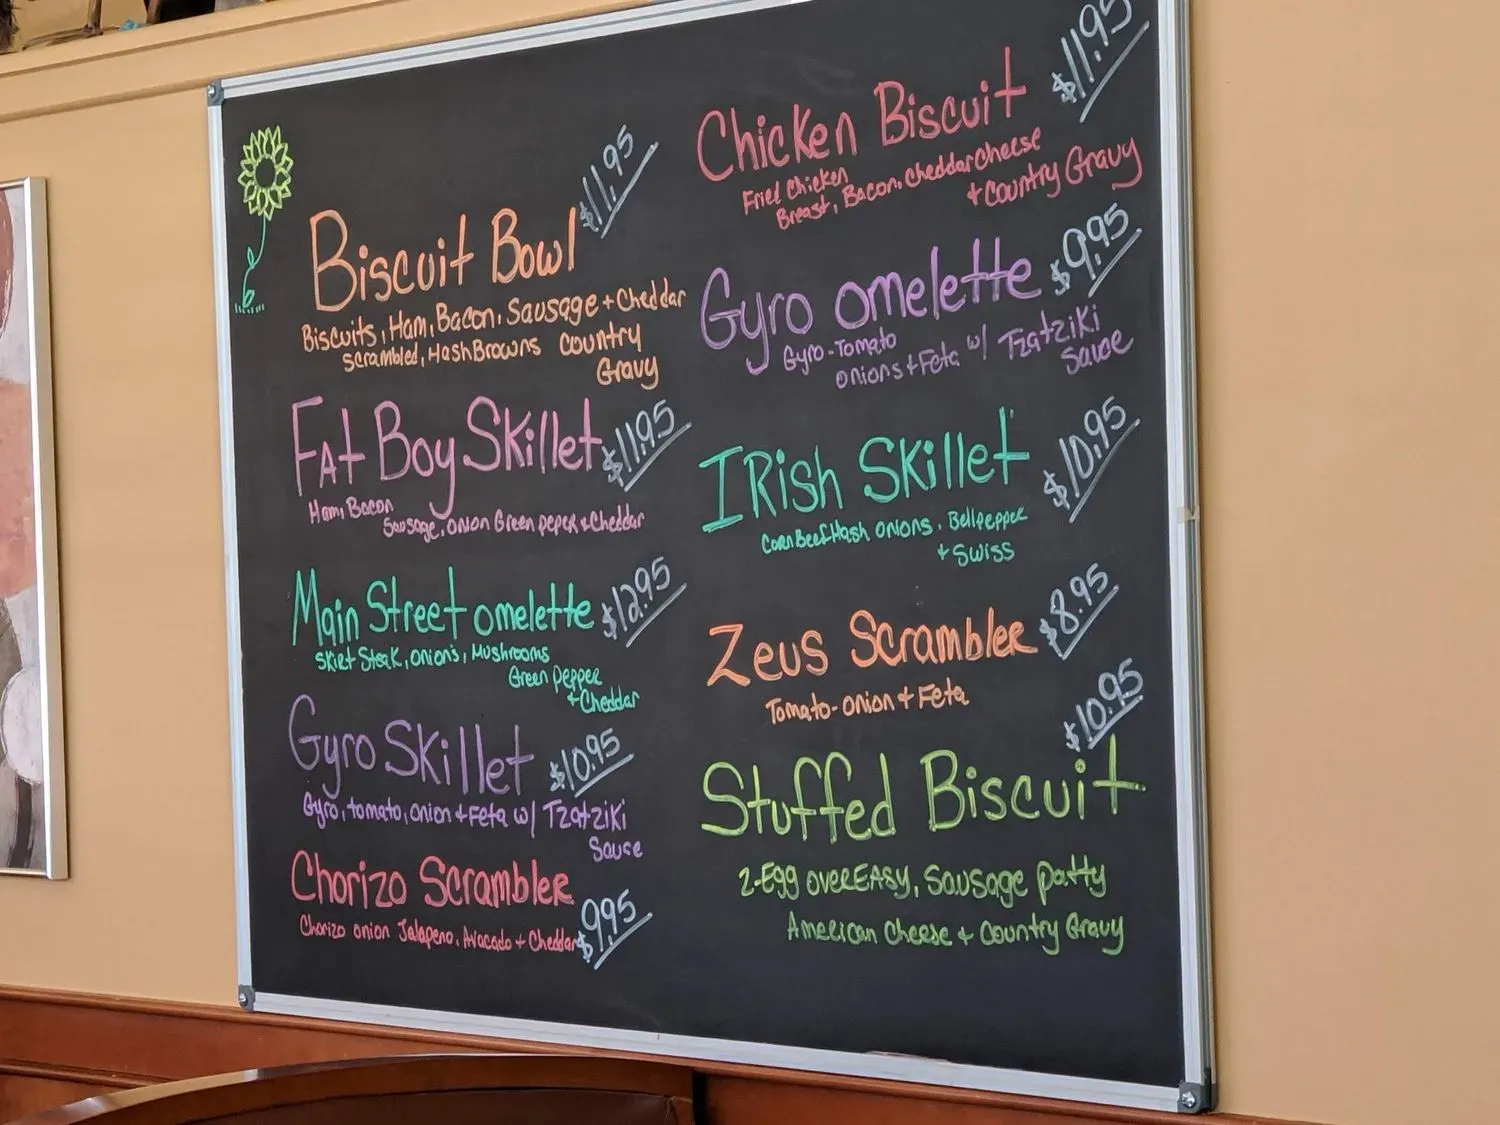 Biscuit Bowl $11.95
Biscuits, Ham, Bacon, Sausage + Cheddar
Scrambled, HashBrowns Country
Gravy
Fat Boy Skillet $11.95
Ham, Bacon
Sausage, onion Green peper + Cheddar
Main Street omelette $12.95
Skirt Steak, onion's, Mushrooms
Green Pepper
+ Cheddar
Gyro Skillet $10.95
Gyro, tomato, onion + Feta w/ Tzatziki
Sauce
Chorizo Scrambler
Chorizo onion Jalapeno, Avocado + Cheddar $9.95
Chicken Biscuit $11.95
Fried Chicken
Breast, Bacon, Cheddar Cheese
+ Country Gravy
Gyro omelette $9.95
Gyro-Tomato
onions + Feta w/ Tzatziki
Sauce
Irish Skillet $10.95
Corn Beef Hash onions, Bellpepper
+ Swiss
Zeus Scrambler $8.95
Tomato-onion + Feta
$10.95
Stuffed Biscuit
2-Egg overEasy, Sausage patty
American Cheese + Country Gravy